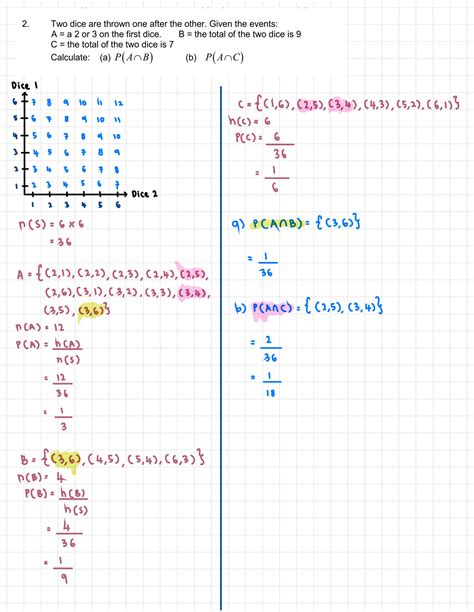 2. Two dice are thrown one after the other. Given the events:
A = a 2 or 3 on the first dice. B = the total of the two dice is 9
C = the total of the two dice is 7
Calculate: (a) P(A∩B) (b) P(A∩C)
Dice 1
6 7 8 9 10 11 12
5 6 7 8 9 10 11
4 5 6 7 8 9 10
3 4 5 6 7 8 9
2 3 4 5 6 7 8
1 2 3 4 5 6 7
Dice 2
1 2 3 4 5 6
n(S) = 6 × 6
= 36
A = {(2,1), (2,2), (2,3), (2,4), (2,5),
(2,6), (3,1), (3,2), (3,3), (3,4),
(3,5), (3,6)}
n(A) = 12
P(A) = n(A)
n(S)
= 12
36
= 1
3
B = {(3,6), (4,5), (5,4), (6,3)}
n(B) = 4
P(B) = n(B)
n(S)
= 4
36
= 1
9
C = {(1,6), (2,5), (3,4), (4,3), (5,2), (6,1)}
n(C) = 6
P(C) = 6
36
= 1
6
a) P(A∩B) = {(3,6)}
= 1
36
b) P(A∩C) = {(2,5), (3,4)}
= 2
36
= 1
18